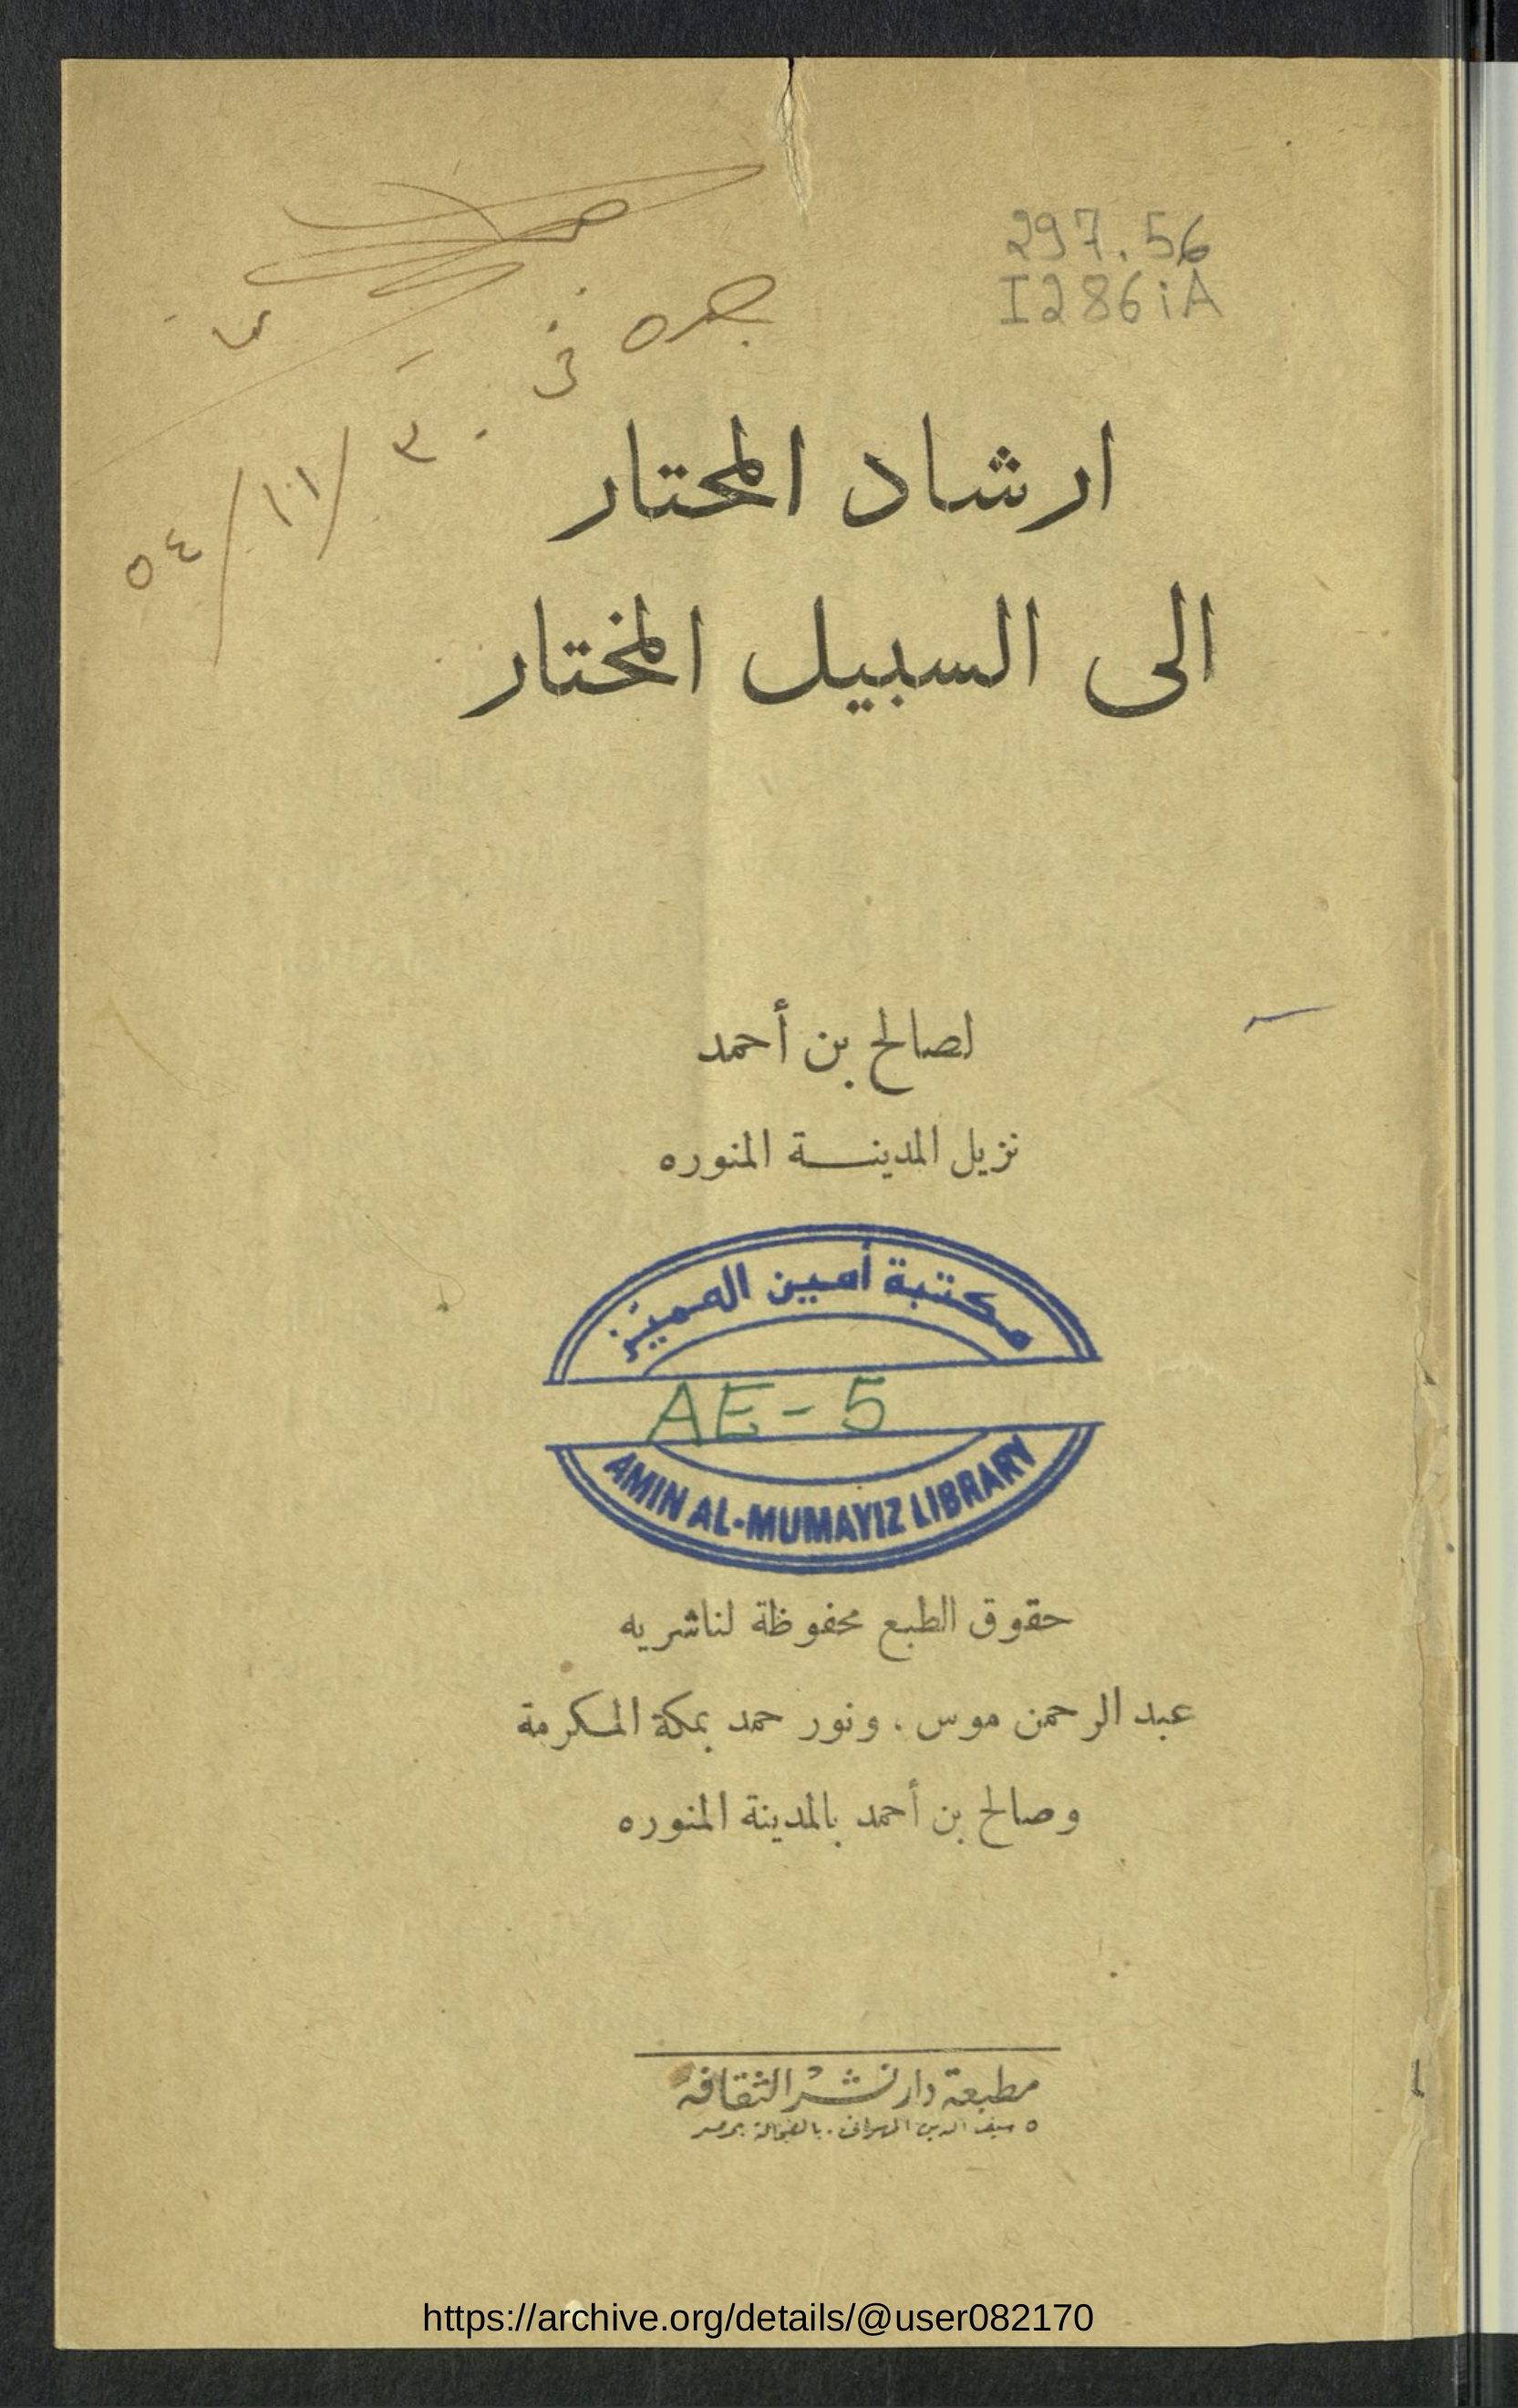 297.56
I286iA
جده في
٣٠/١١/٥٤
ارشاد المحتار
الى السبيل المختار
لصالح بن أحمد
نزيل المدينة المنوره
مكتبة أمين المميّز
AE-5
AMIN AL-MUMAYIZ LIBRARY
حقوق الطبع محفوظة لناشريه
عبد الرحمن موس ، ونور حمد بمكة المكرمة
وصالح بن أحمد بالمدينة المنوره
مطبعة دار نشر الثقافة
٥ سيف الدين المهرانى . بالفجالة بمصر
https://archive.org/details/@user082170